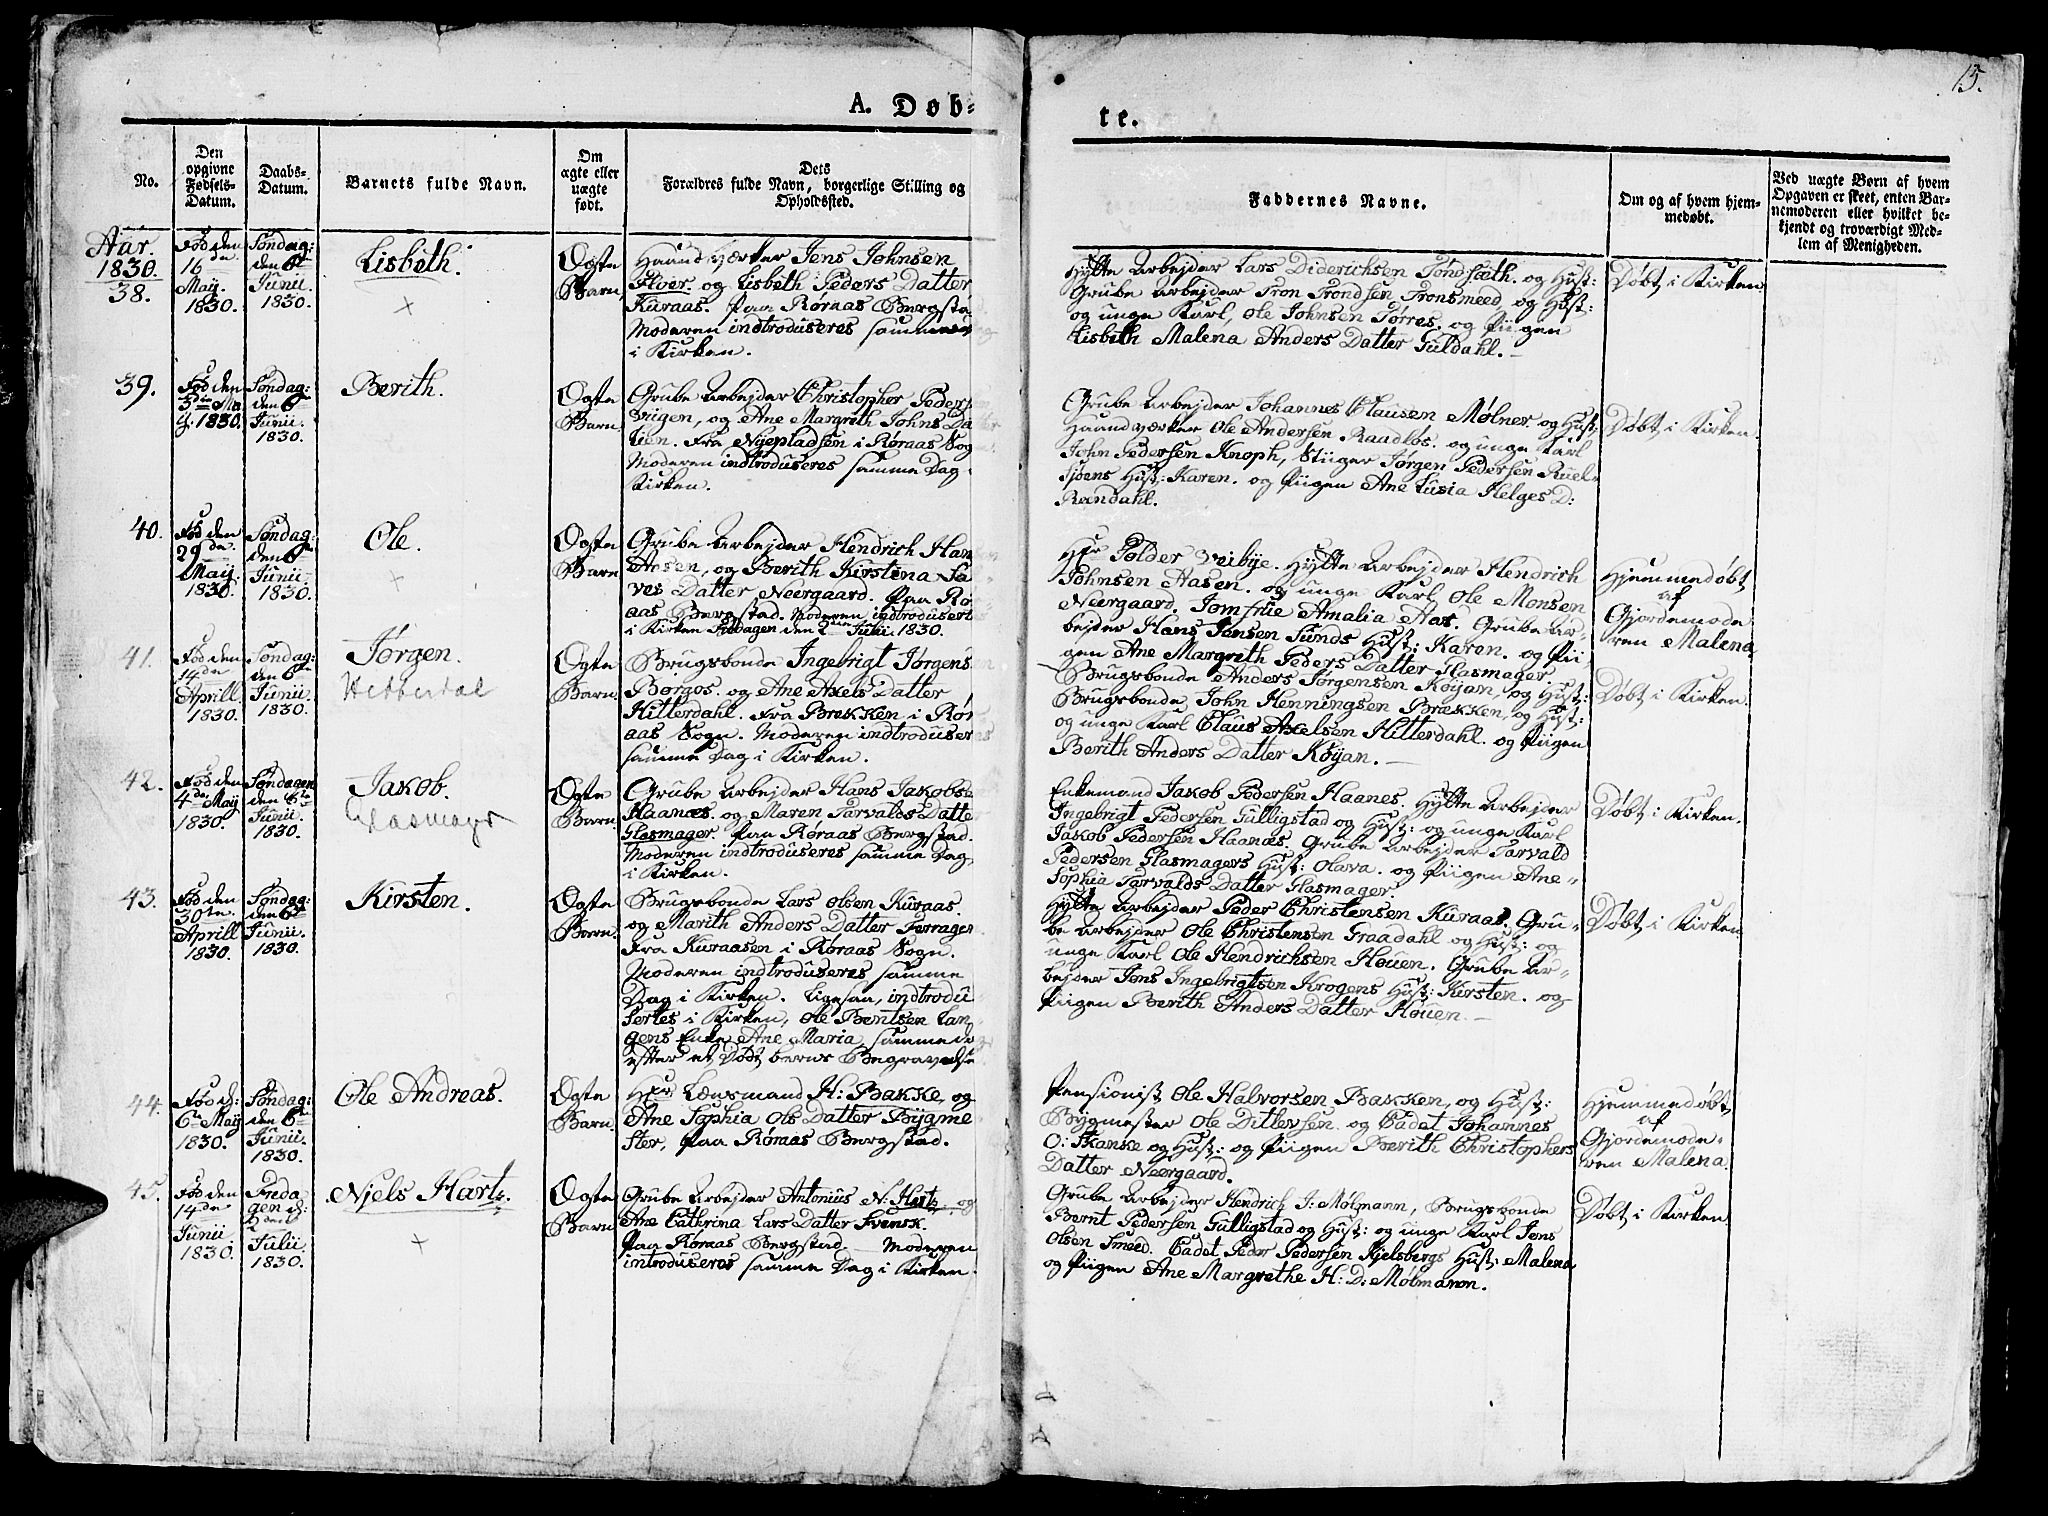 15.
A. Døb-
te.
No.
Den
opgivne
Fødsels-
Datum.
Daabs-
Datum.
Barnets fulde Navn.
Om
ægte eller
uægte
født.
Dets
Forældres fulde Navn, borgerlige Stilling og
Opholdssted.
Faddernes Navne.
Om og af hvem hjem-
medøbt.
Ved uægte Børn af hvem
Opgaven er skeet, enten Bar-
nemoderen eller hvilket be-
kjendt og troværdigt Med-
lem af Menigheden.
Aar.
1830.
38.
Fød den
16de
Maij.
1830.
Søndag:
den 6te
Junii.
1830.
Lisbeth.
Ægte
Barn,
Haandværker Jens Johnsen
Floer. og Lisbeth Peders Datter
Kuraas. paa Røraas Bergstad
Moderen indtroduseres samme Dag
i Kirken.
Hytte Arbejder Lars Diderichsen Tøndsæth. og Hust:
Grube Arbejder Tron Trondsen Tronsmeed, og Hust:
og unge Karl, Ole Johnsen Tørres. og Piigen
Lisbeth Malena Anders Datter Guldahl.
Døbt i Kirken
39.
Fød den
3die Ma
ij. 1830.
Søndag:
den 6te
Junii.
1830.
Berith.
Ægte
Barn.
Grube Arbejder Christopher Peders
Viigen, og Ane Margreth Johns Da
Lien. Fra Nyepladsen i Røraas Sog
Moderen indtroduseres samme Dag
Kirken.
Grube Arbejder Johannes Clausen Mølner. og Hust.
Haandværker Ole Andersen Raadløs. og unge Karl
John Pedersen Knoph, Stiiger Jørgen Pedersen Ruel-
Sjøens Hust: Karen. og Piigen Ane Lusia Helges D:
Rændahl.
Døbt i Kirken.
40.
Fød den
29de
Maij
1830.
Søndag:
den 6te
Junii
1830.
Ole.
Ægte
Barn
Grube Arbejder Hendrich Han
Aasen, og Berith Kirstina Sa
ves Datter Neergaard. paa Rør
aas Bergstad. Moderen indtroduseres
i Kirken Fredagen den 2den Julii 1830.
Hr Polder Veibye. Hytte Arbejder Hendrich
Johnsen Aasen. og unge Karl Ole Monsen
Neergaard. Jomfrue Amalia Aas. Grube Ar-
bejder Hans Jensen Sunds Hust: Karen. og Pii
gen Ane Margreth Peders Datter Glasmager
Hjemmedøbt
af
Gjordemode
ren Malena
41.
Fød den
14de
Aprill
1830.
Søndag:
den 6te
Junii
1830.
Jørgen.
Hitterdal
Ægte
Barn.
Brugsbonde Ingebrigt Jørgensen
Borgos. og Ane Axels Datter
Hitterdahl. Fra Brekken i Rør
aas Sogn. Moderen indtroduseres
samme Dag i Kirken.
Brugsbonde Anders Jørgensen Kojan, og Hust:
Brugsbonde, John Henningsen Brækken, og Hust:
og unge Karl Claus Axelsen Hitterdahl. og Piigen
Berith Anders Datter Køjan.
Døbt i Kirken.
42.
Fød den
4de Maij
1830.
Søndagen
den 6te
Junii.
1830.
Jakob.
Glasmager
Ægte
Barn.
Grube Arbejder Hans Jakobsen
Haanæs. og Maren Tarvalds Datter
Glasmager paa Røraas Bergstad.
Moderen indtroduseres samme Dag,
i Kirken.
Enkemand Jakob Pedersen Haanes. Hytte Arbejder
Ingebrigt Pedersen Gulligstad og Hust: og unge Karl
Jakob Pedersen Haanæs. Grube Arbejder Tarvald
Pedersen Glasmagers Hust: Olava. og Piigen Ane-
Sophia Tarvalds Datter Glasmager
Døbt i Kirken.
43.
Fød den
30te
Aprill
1830.
Søndag:
den 6te
Junii.
1830.
Kirsten.
Ægte
Barn.
Brugsbonde Lars Olsen Kuraas.
og Marith Anders Datter Ferragen
Fra Kuraasen i Røraas Sogn.
Moderen indtroduseres samme
Dag i Kirken. Ligesaa, indtrodu
sertes i Kirken, Ole Berntsen Lan
gens Enke Ane Maria samme Dag
efter et Dødt barns Begravelse
Hytte Arbejder Peder Christensen Kuraas. Gru-
be Arbejder Ole Christensen Graadahl og Hust: og
unge Karl Ole Hendrichsen Houen. Grube Ar-
bejder Jens Ingebrigtsen Krogens Hust: Kirsten. og
Piigen Berith Anders Datter Houen.
Døbt i Kirken
44.
Fød d:
6te Maij
1830.
Søndag:
den 6te
Junii.
1830.
Ole Andreas.
Ægte
Barn.
Hr Lænsmand H: Bakke, og
Ane Sophia Ols Datter Bygme
ster, paa Røraas Bergstad.
Pensionist Ole Halvorsen Bakken, og Hust:
Bygmester Ole Ditlevsen. og Cadet Johannes
O: Skanke og Hust: og Piigen Berith Christophers
Datter Neergaard.
Hjemmedøbt
af
Gjordemode-
ren Malena
45.
Fød den
14de
Junii
1830.
Freda
gen d:
2den
Julii
1830.
Njels Hartz.
Ægte
Barn
Grube Arbejder Antonius N: Hertz, og
Ane Cathrina Lars Datter Svensk
paa Røraas Bergstad. Moderen
introduseres samme Dag i Kirken.
Grube Arbejder Hendrich J: Mølmann, Brugsbonde
Bernt Pedersen Gulligstad og Hust: og unge Karl Jens
Olsen Smeed. Cadet Peder Pedersen Kjelsbergs Hust: Malena
og Piigen Ane Margrethe H: D: Mølmann.
Døbt i Kirken